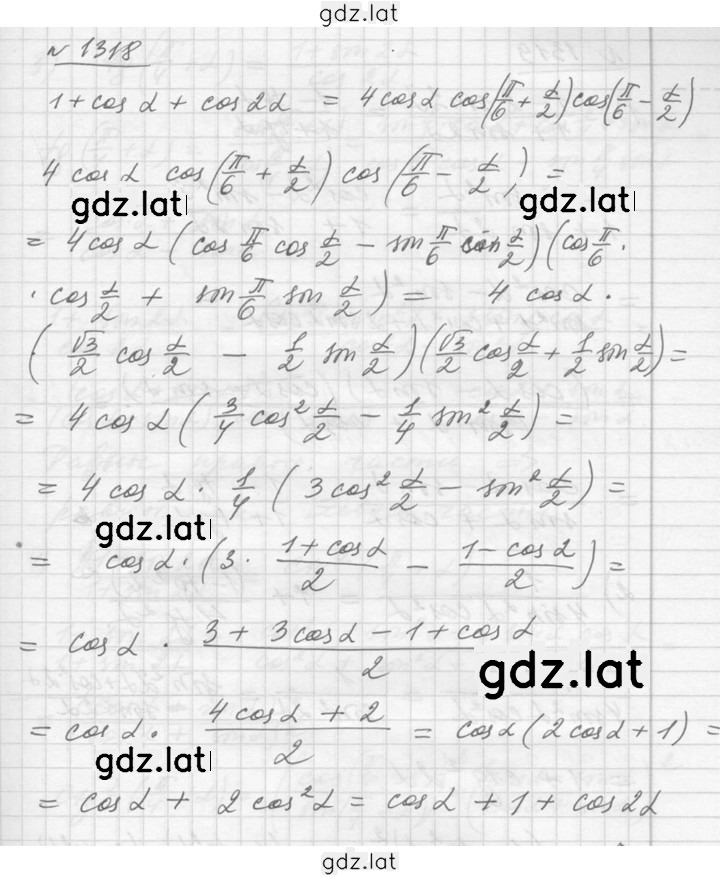 gdz.lat
№ 1318
1 + cos α + cos 2α = 4 cos α cos(π/6 + α/2) cos(π/6 − α/2)
4 cos α cos(π/6 + α/2) cos(π/6 − α/2) =
gdz.lat gdz.lat
= 4 cos α (cos π/6 cos α/2 − sin π/6 sin α/2)(cos π/6 ·
· cos α/2 + sin π/6 sin α/2) = 4 cos α ·
(√3/2 cos α/2 − 1/2 sin α/2)(√3/2 cos α/2 + 1/2 sin α/2) =
= 4 cos α (3/4 cos² α/2 − 1/4 sin² α/2) =
= 4 cos α · 1/4 (3 cos² α/2 − sin² α/2) =
gdz.lat
= cos α · (3 · (1 + cos α)/2 − (1 − cos α)/2) =
= cos α · (3 + 3 cos α − 1 + cos α)/2
gdz.lat
= cos α · (4 cos α + 2)/2 = cos α (2 cos α + 1) =
gdz.lat
= cos α + 2 cos² α = cos α + 1 + cos 2α
gdz.lat